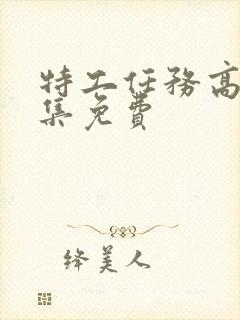 特工任務高
集免費
绛美人